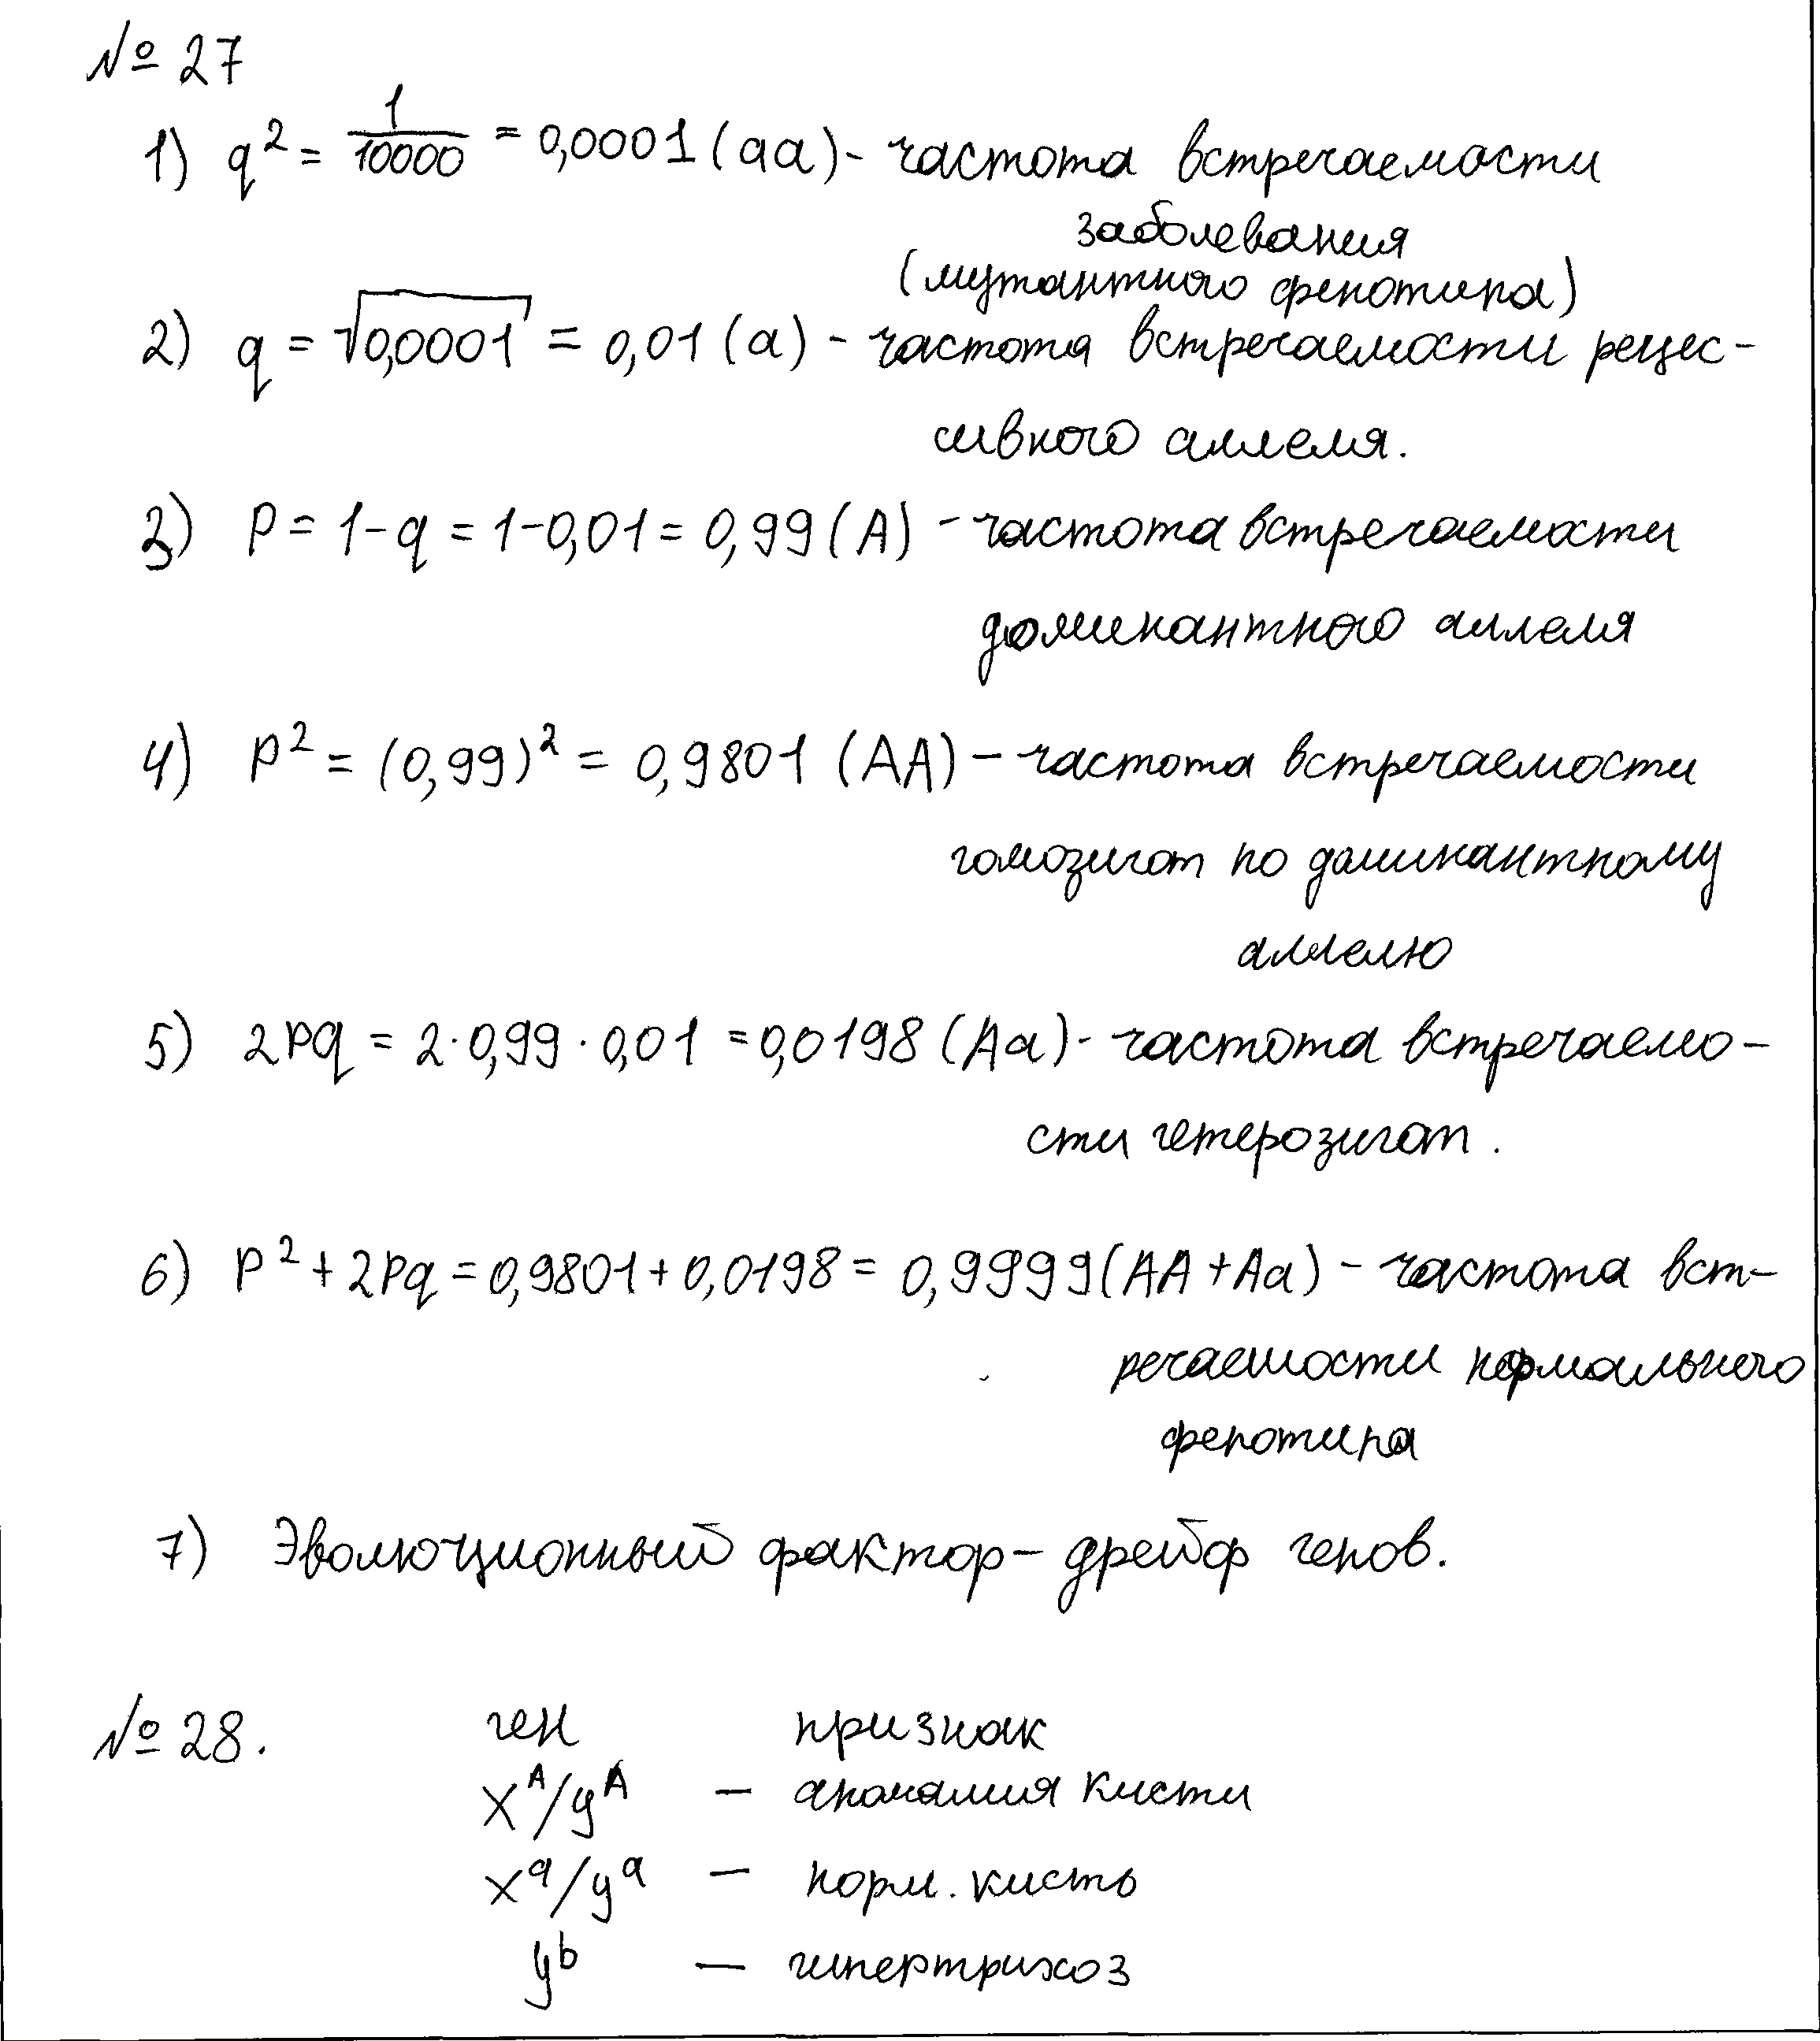 № 27
1) q² = 1/10000 = 0,0001 (aa) - частота встречаемости
заболевания
(мутантного фенотипа)
2) q = √0,0001 = 0,01 (a) - частота встречаемости рецес-
сивного аллеля.
3) P = 1-q = 1-0,01 = 0,99 (A) - частота встречаемости
доминантного аллеля
4) P² = (0,99)² = 0,9801 (AA) - частота встречаемости
гомозигот по доминантному
аллелю
5) 2Pq = 2·0,99·0,01 = 0,0198 (Aa) - частота встречаемо-
сти гетерозигот.
6) P² + 2Pq = 0,9801 + 0,0198 = 0,9999 (AA + Aa) - частота вст-
речаемости нормального
фенотипа
7) Эволюционный фактор - дрейф генов.
№ 28. ген признак
X^A/y^A - аномалия кисти
X^a/y^a - норм. кисть
y^b - гипертрихоз